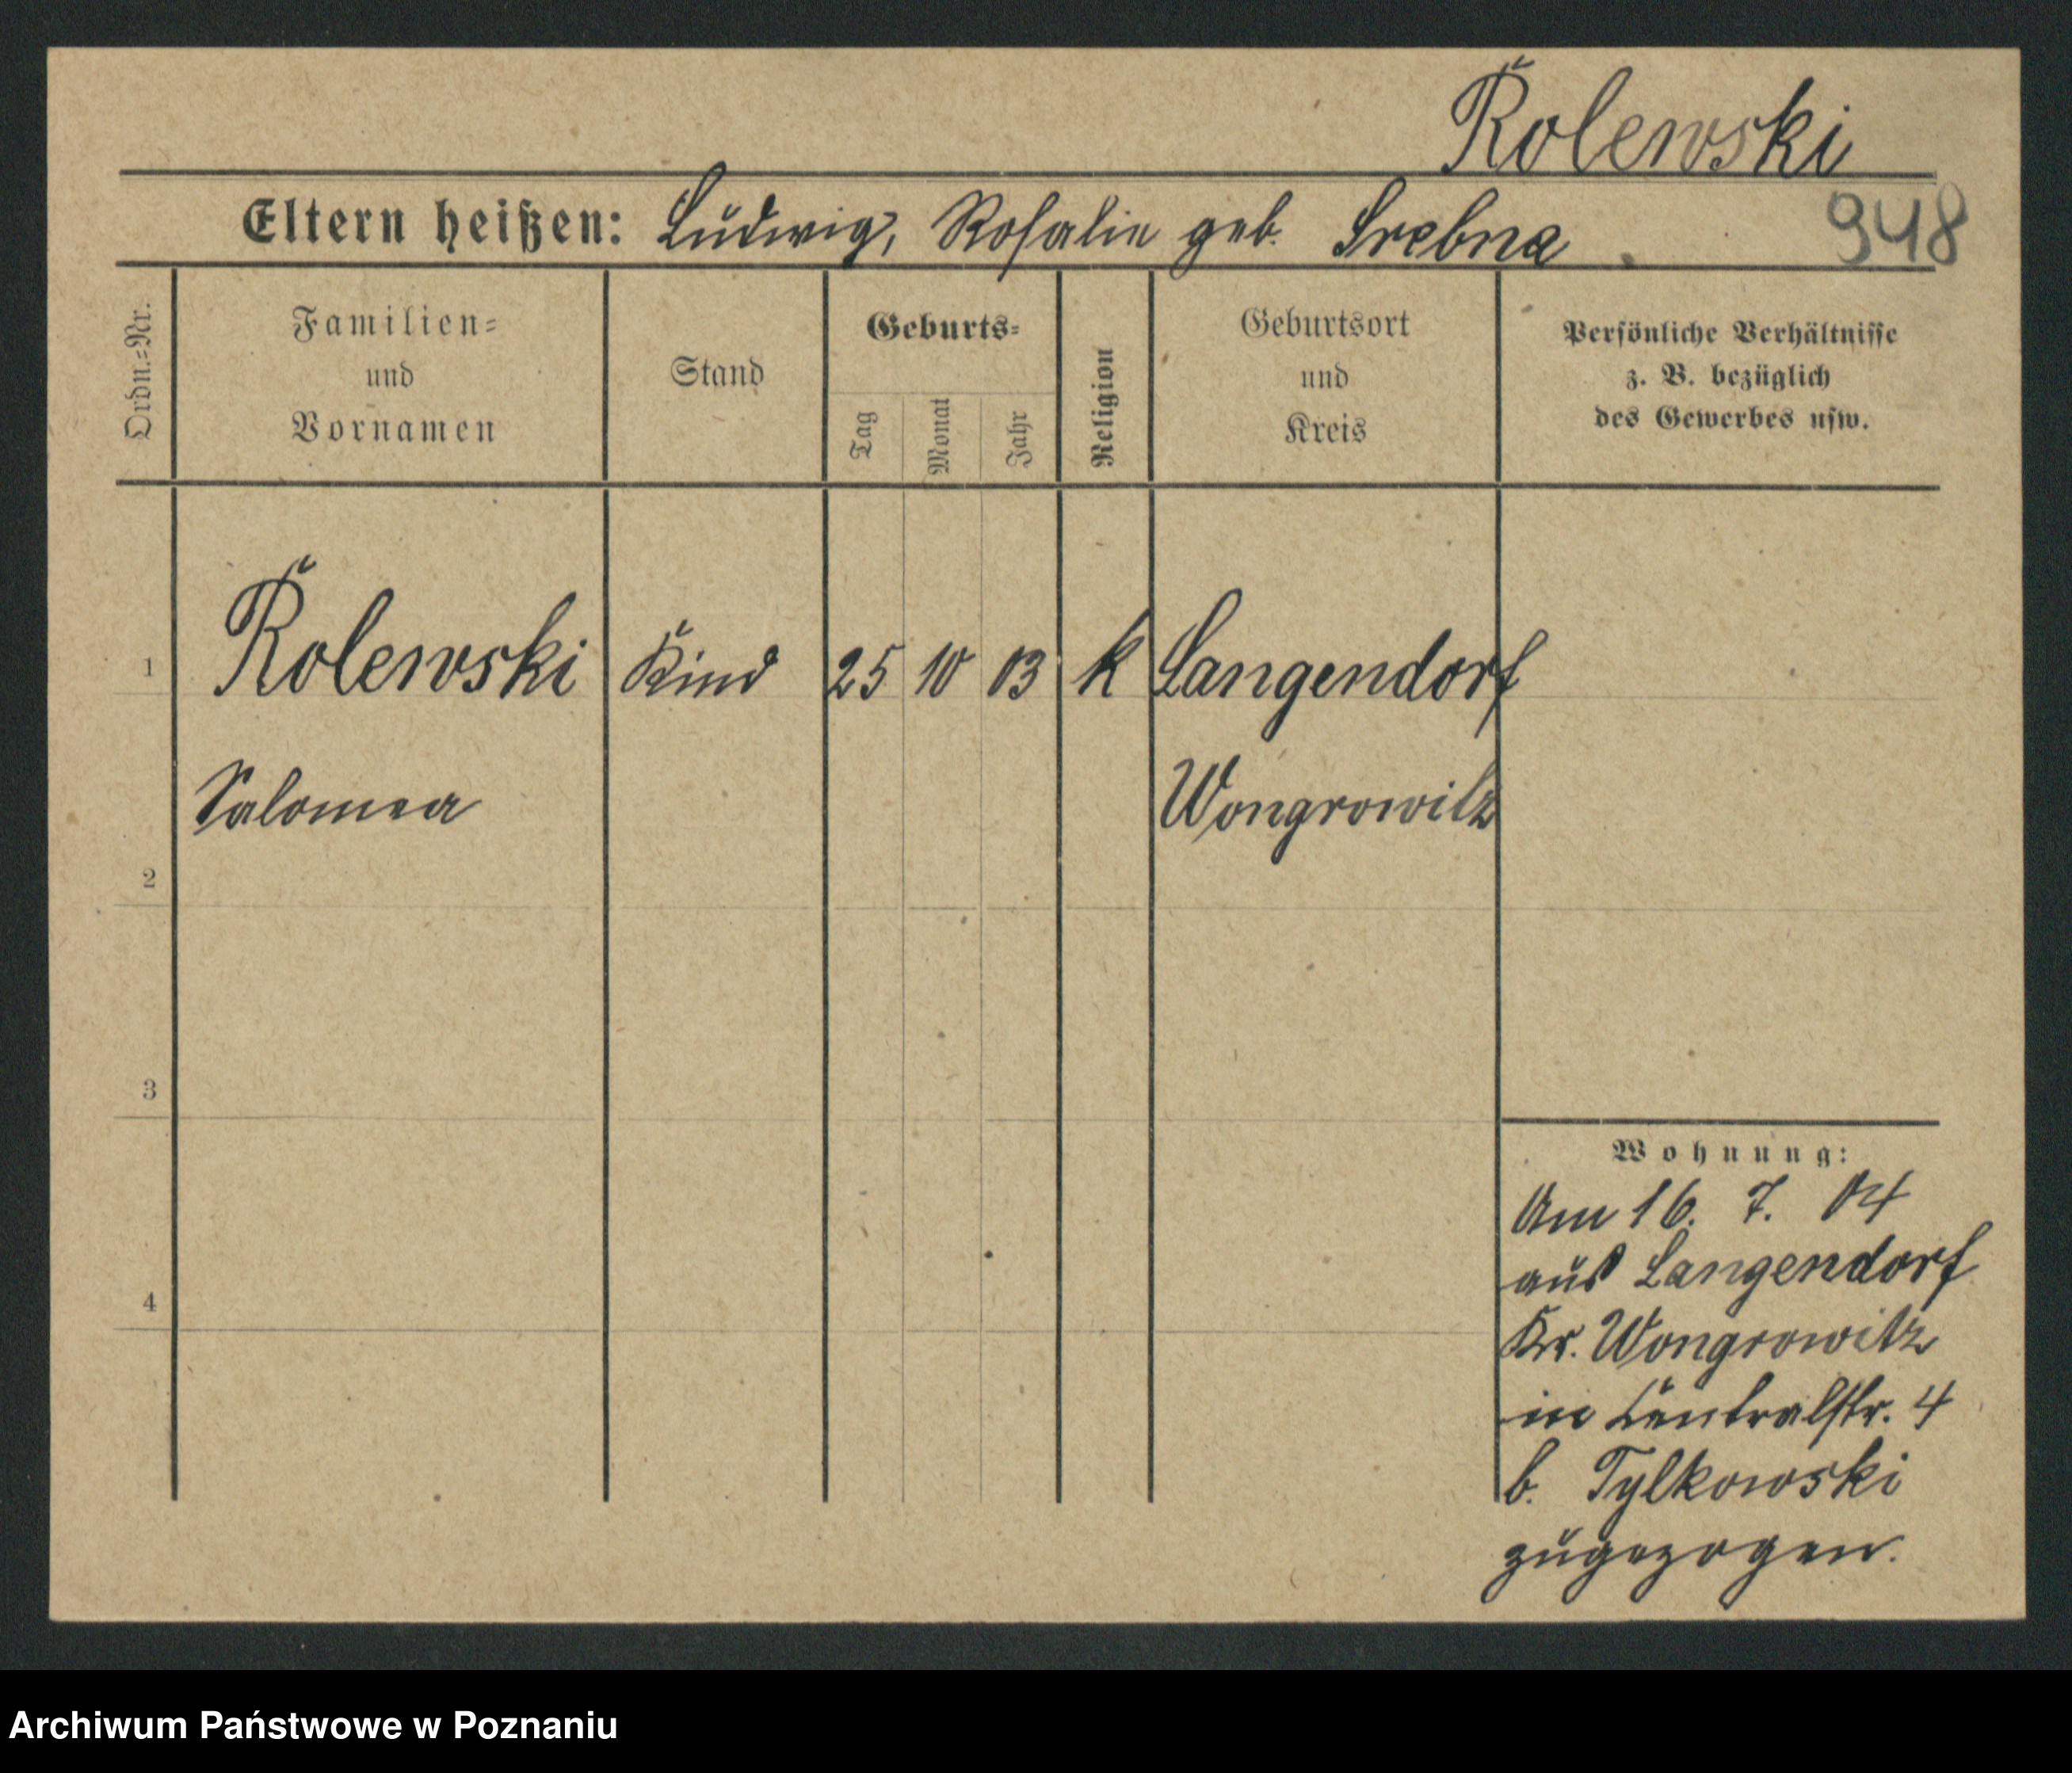 Rolewski
Eltern heißen: Ludwig, Rosalie geb. Srebna. 948
Ordn.=Nr.
Familien=
und
Vornamen
Stand
Geburts=
Tag
Monat
Jahr
Religion
Geburtsort
und
Kreis
Persönliche Verhältnisse
z. B. bezüglich
des Gewerbes usw.
1 Rolewski Kind 25 10 03 k Langendorf
Salomea Wongrowitz
2
3
4
Wohnung:
Am 16. 7. 04
aus Langendorf
Kr. Wongrowitz
in Centralstr. 4
b. Tylkowski
zugezogen.
Archiwum Państwowe w Poznaniu